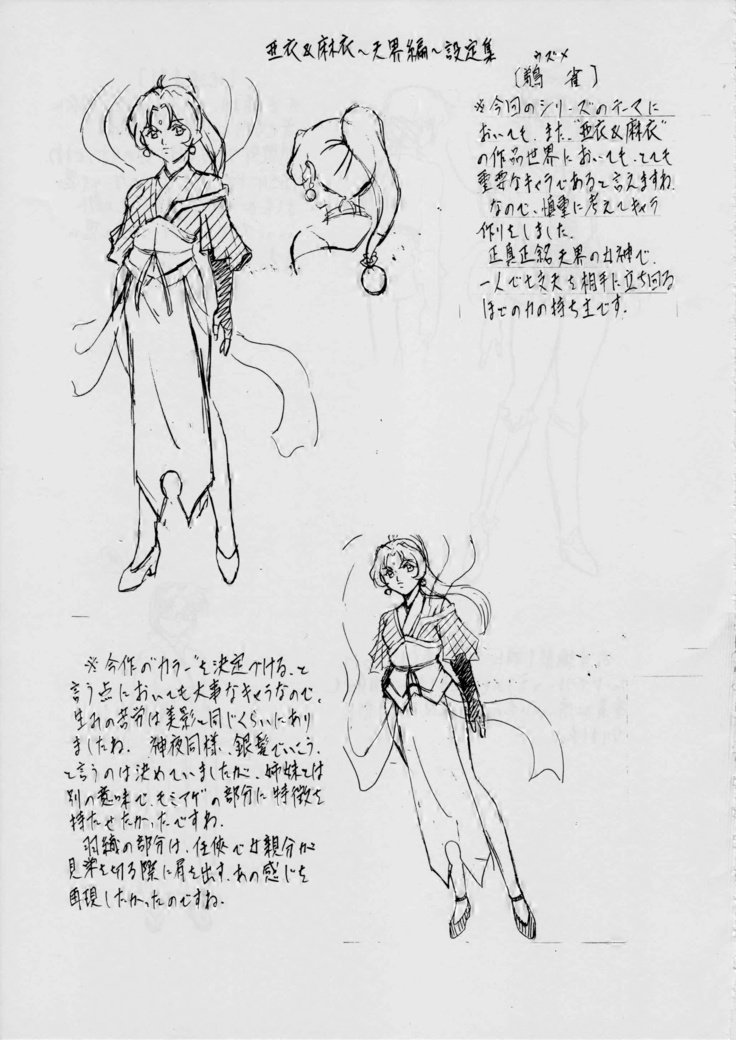 亜衣&麻衣～天界編～設定集
ウズメ
〔鵜雀〕
※今回のシリーズのテーマに
おいても、また、"亜衣&麻衣"
の作品世界においても、とても
重要なキャラであると言えますね.
なので、慎重に考えてキャラ
作りをしました.
正真正銘天界の女神で、
一人で七丈夫を相手に立ち回る
ほどの力の持ち主です.
※今作の"カラー"を決定づける、と
言う点においても大事なキャラなので、
生れの苦労は美影と同じくらいにあり
ましたね. 神夜同様、銀髪でいこう、
と言うのは決めていましたが、姉妹とは
別の意味で、モミアゲの部分に特徴を
持たせたかったですね.
羽織の部分は、任侠で女親分が
見栄を切る際に肩を出す、あの感じを
再現したかったのですね.